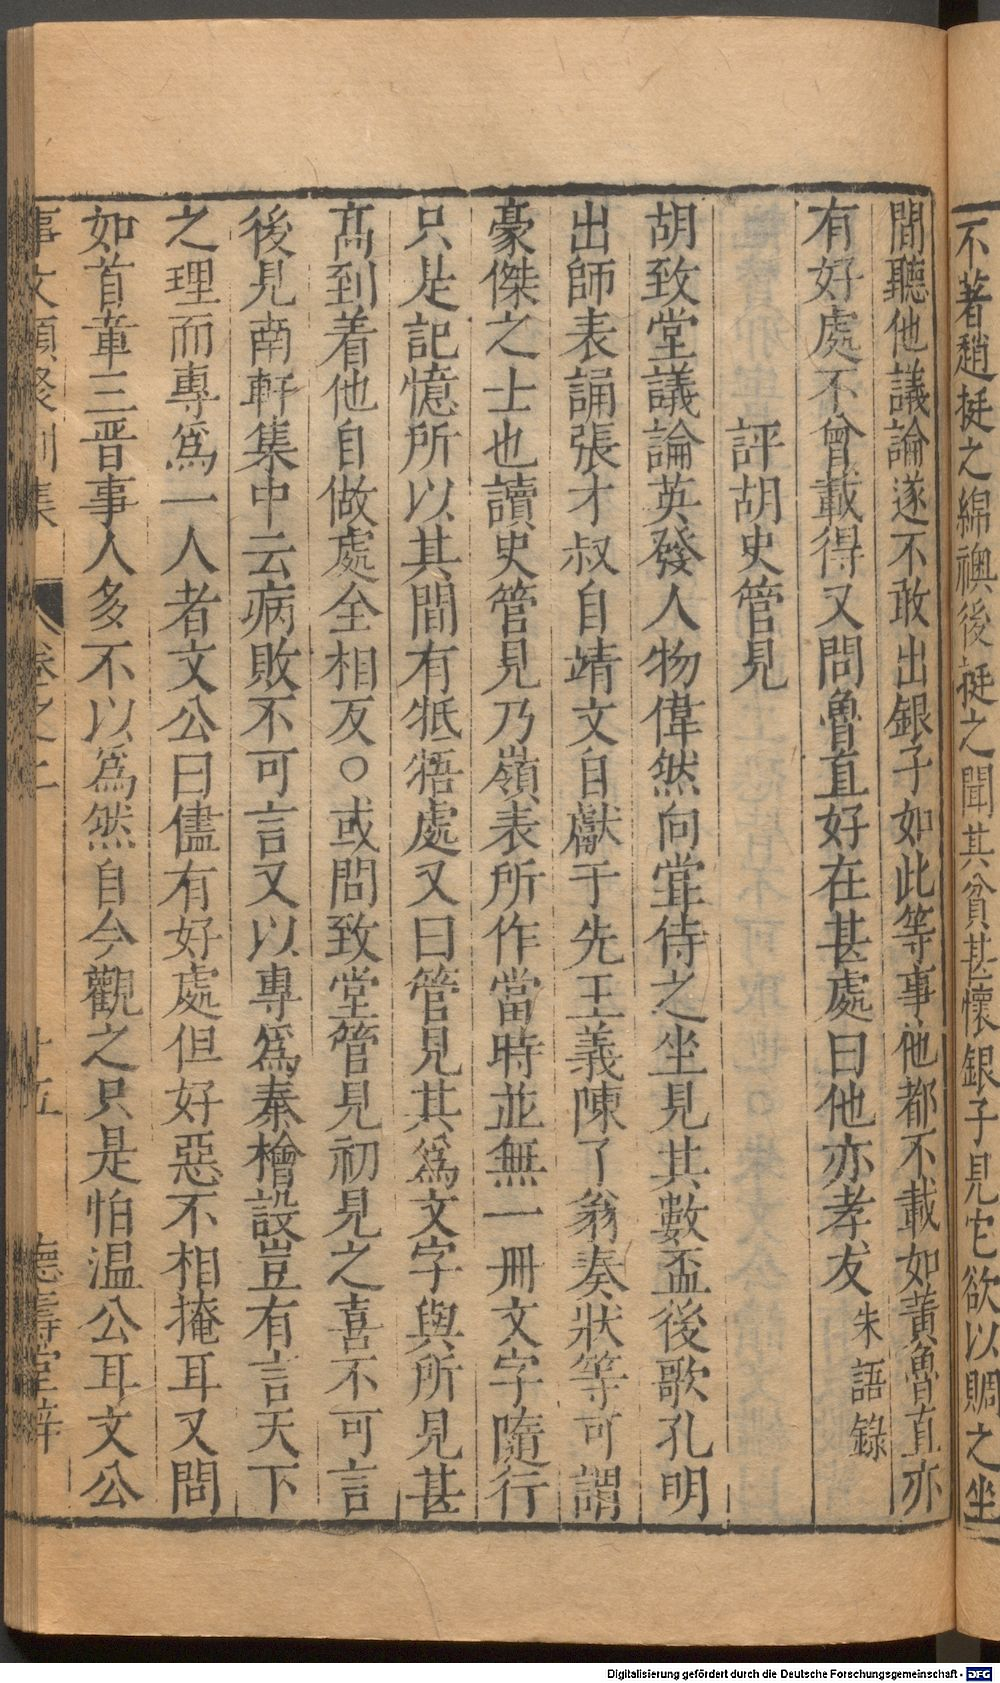 不著趙挺之綿襖後挺之聞其貧甚懷銀子見它欲以賙之坐
間聽他議論遂不敢出銀子如此等事他都不載如黃魯直亦
有好處不曾載得又問魯直好在甚處曰他亦孝友朱語錄
評胡史管見
胡致堂議論英發人物偉然向甞侍之坐見其數盃後歌孔明
出師表誦張才叔自靖文自獻于先王義陳了翁奏狀等可謂
豪傑之士也讀史管見乃嶺表所作當時並無一冊文字隨行
只是記憶所以其間有牴牾處又曰管見其爲文字與所見甚
髙到着他自做處全相反○或問致堂管見初見之喜不可言
後見南軒集中云病敗不可言又以專爲秦檜設豈有言天下
之理而專爲一人者文公曰儘有好處但好惡不相掩耳又問
如首章三晋事人多不以爲然自今觀之只是怕温公耳文公
事文類聚別集 卷之二 十五 德壽堂梓
Digitalisierung gefördert durch die Deutsche Forschungsgemeinschaft - DFG